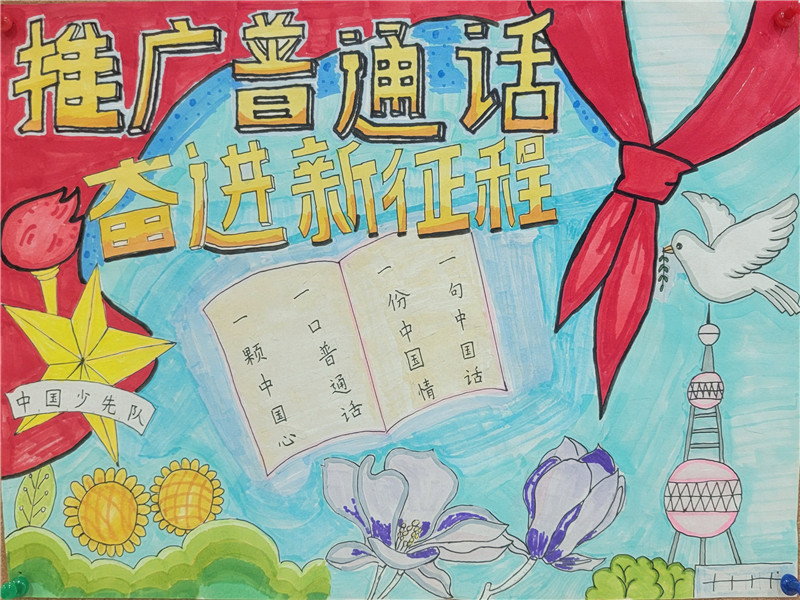 推广普通话
奋进新征程
一句中国话
一份中国情
一口普通话
一颗中国心
中国少先队